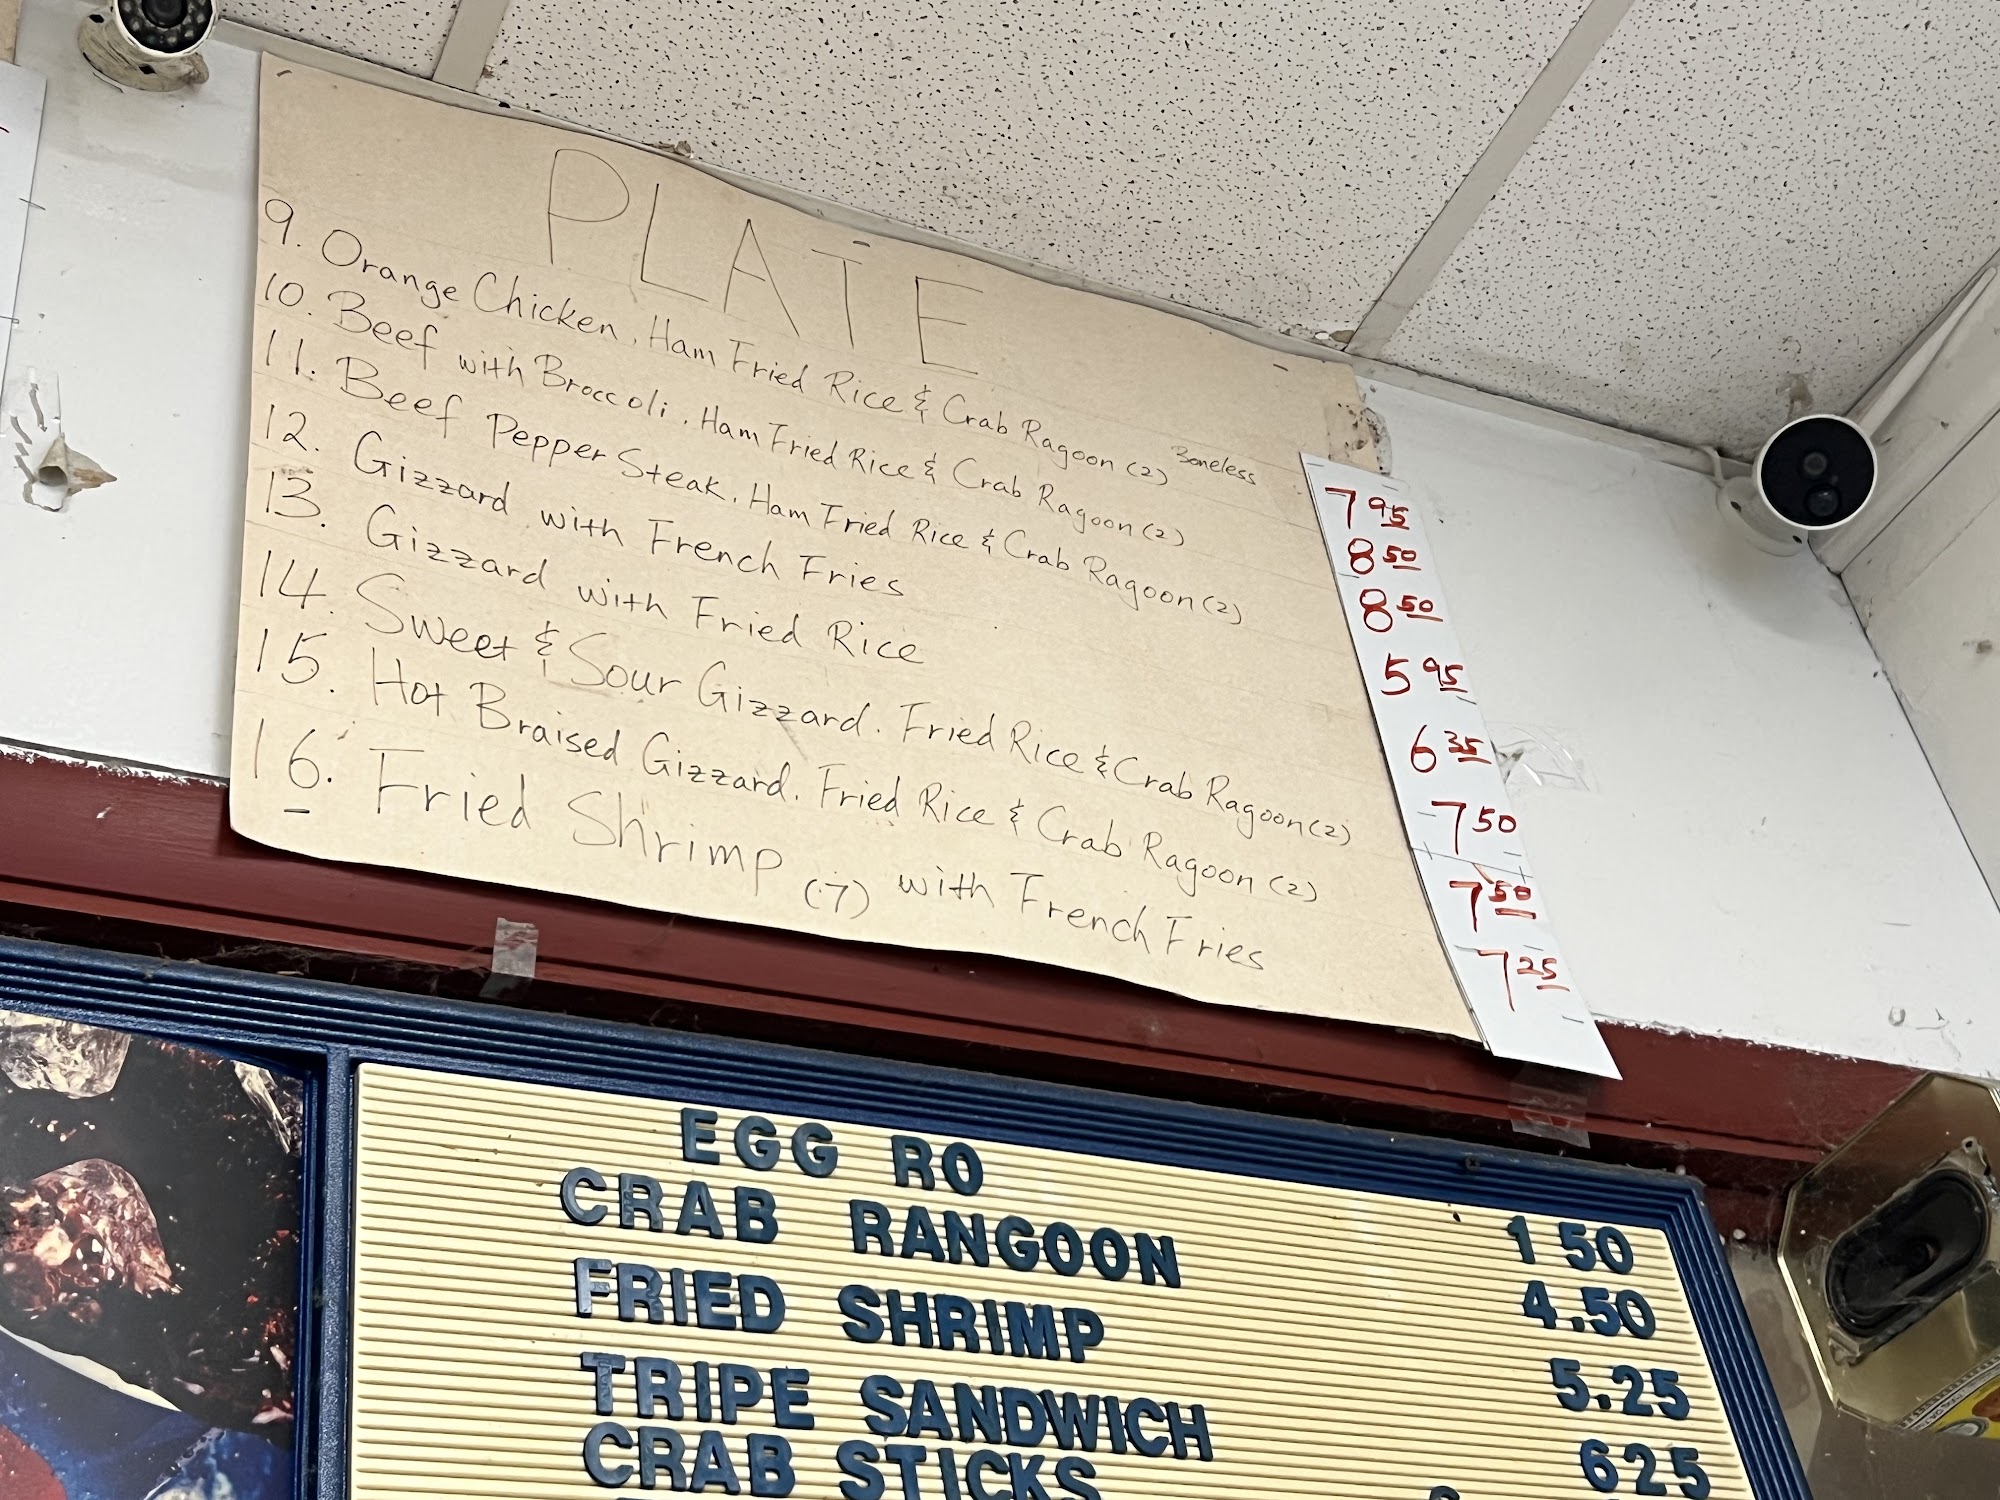 PLATE
9. Orange Chicken, Ham Fried Rice & Crab Ragoon (2) Boneless 7 95
10. Beef with Broccoli, Ham Fried Rice & Crab Ragoon (2) 8 50
11. Beef Pepper Steak, Ham Fried Rice & Crab Ragoon (2) 8 50
12. Gizzard with French Fries 5 95
13. Gizzard with Fried Rice 6 35
14. Sweet & Sour Gizzard. Fried Rice & Crab Ragoon (2) 7 50
15. Hot Braised Gizzard. Fried Rice & Crab Ragoon (2) 7 50
16. Fried Shrimp (7) with French Fries 7 25
EGG RO 1 50
CRAB RANGOON 4.50
FRIED SHRIMP 5.25
TRIPE SANDWICH 625
CRAB STICKS